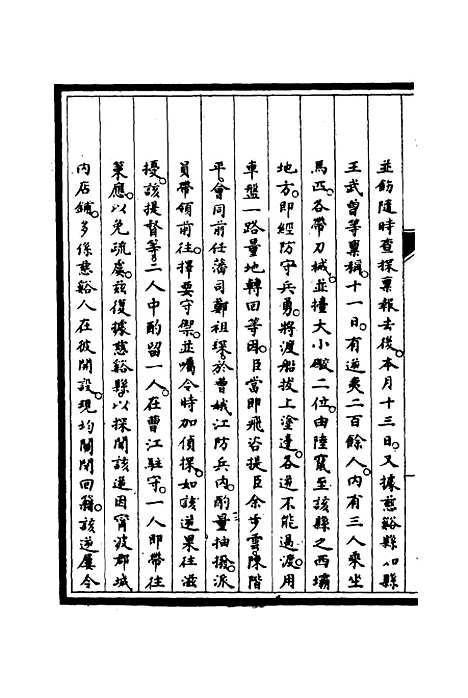 並飭隨時查探稟報去後。本月十三日。又據慈谿縣知縣
王武曾等稟稱。十一日。有逆夷二百餘人。內有三人乘坐
馬匹。各帶刀械。並擡大小礮二位。由陸竄至該縣之西壩
地方。即經防守兵勇。將渡船拔上塗邊。各逆不能過渡。用
車盤一路量地轉回等因。臣當即飛咨提臣余步雲陳階
平。會同前任藩司鄭祖琛於曹娥江防兵內。酌量抽撥。派
員帶領前往。擇要守禦。並囑令時加偵探。如該逆果往滋
擾。該提督等二人中酌留一人。在曹江駐守。一人即帶往
策應。以免疏虞。茲復據慈谿縣以探聞該逆因甯波郡城
內店鋪。多係慈谿人在彼開設。現均關閉回籍。該逆屢令